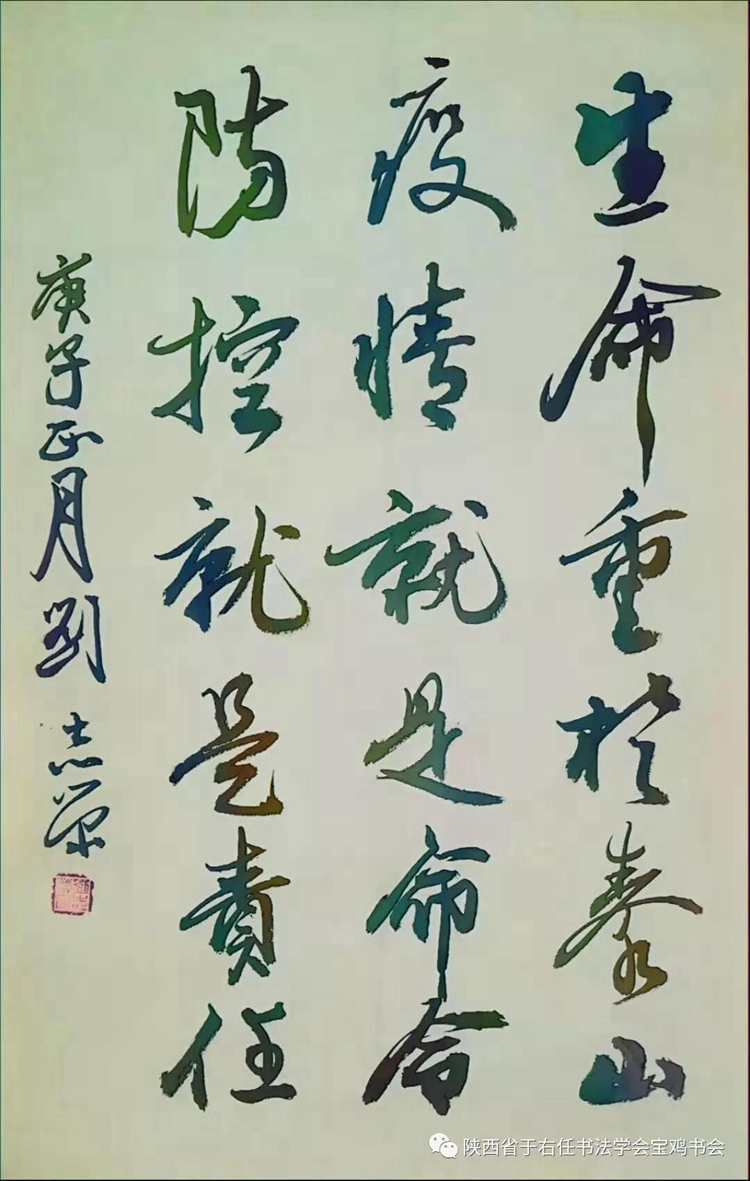 生命重於泰山
疫情就是命令
防控就是責任
庚子正月劉志榮
陕西省于右任书法学会宝鸡书会